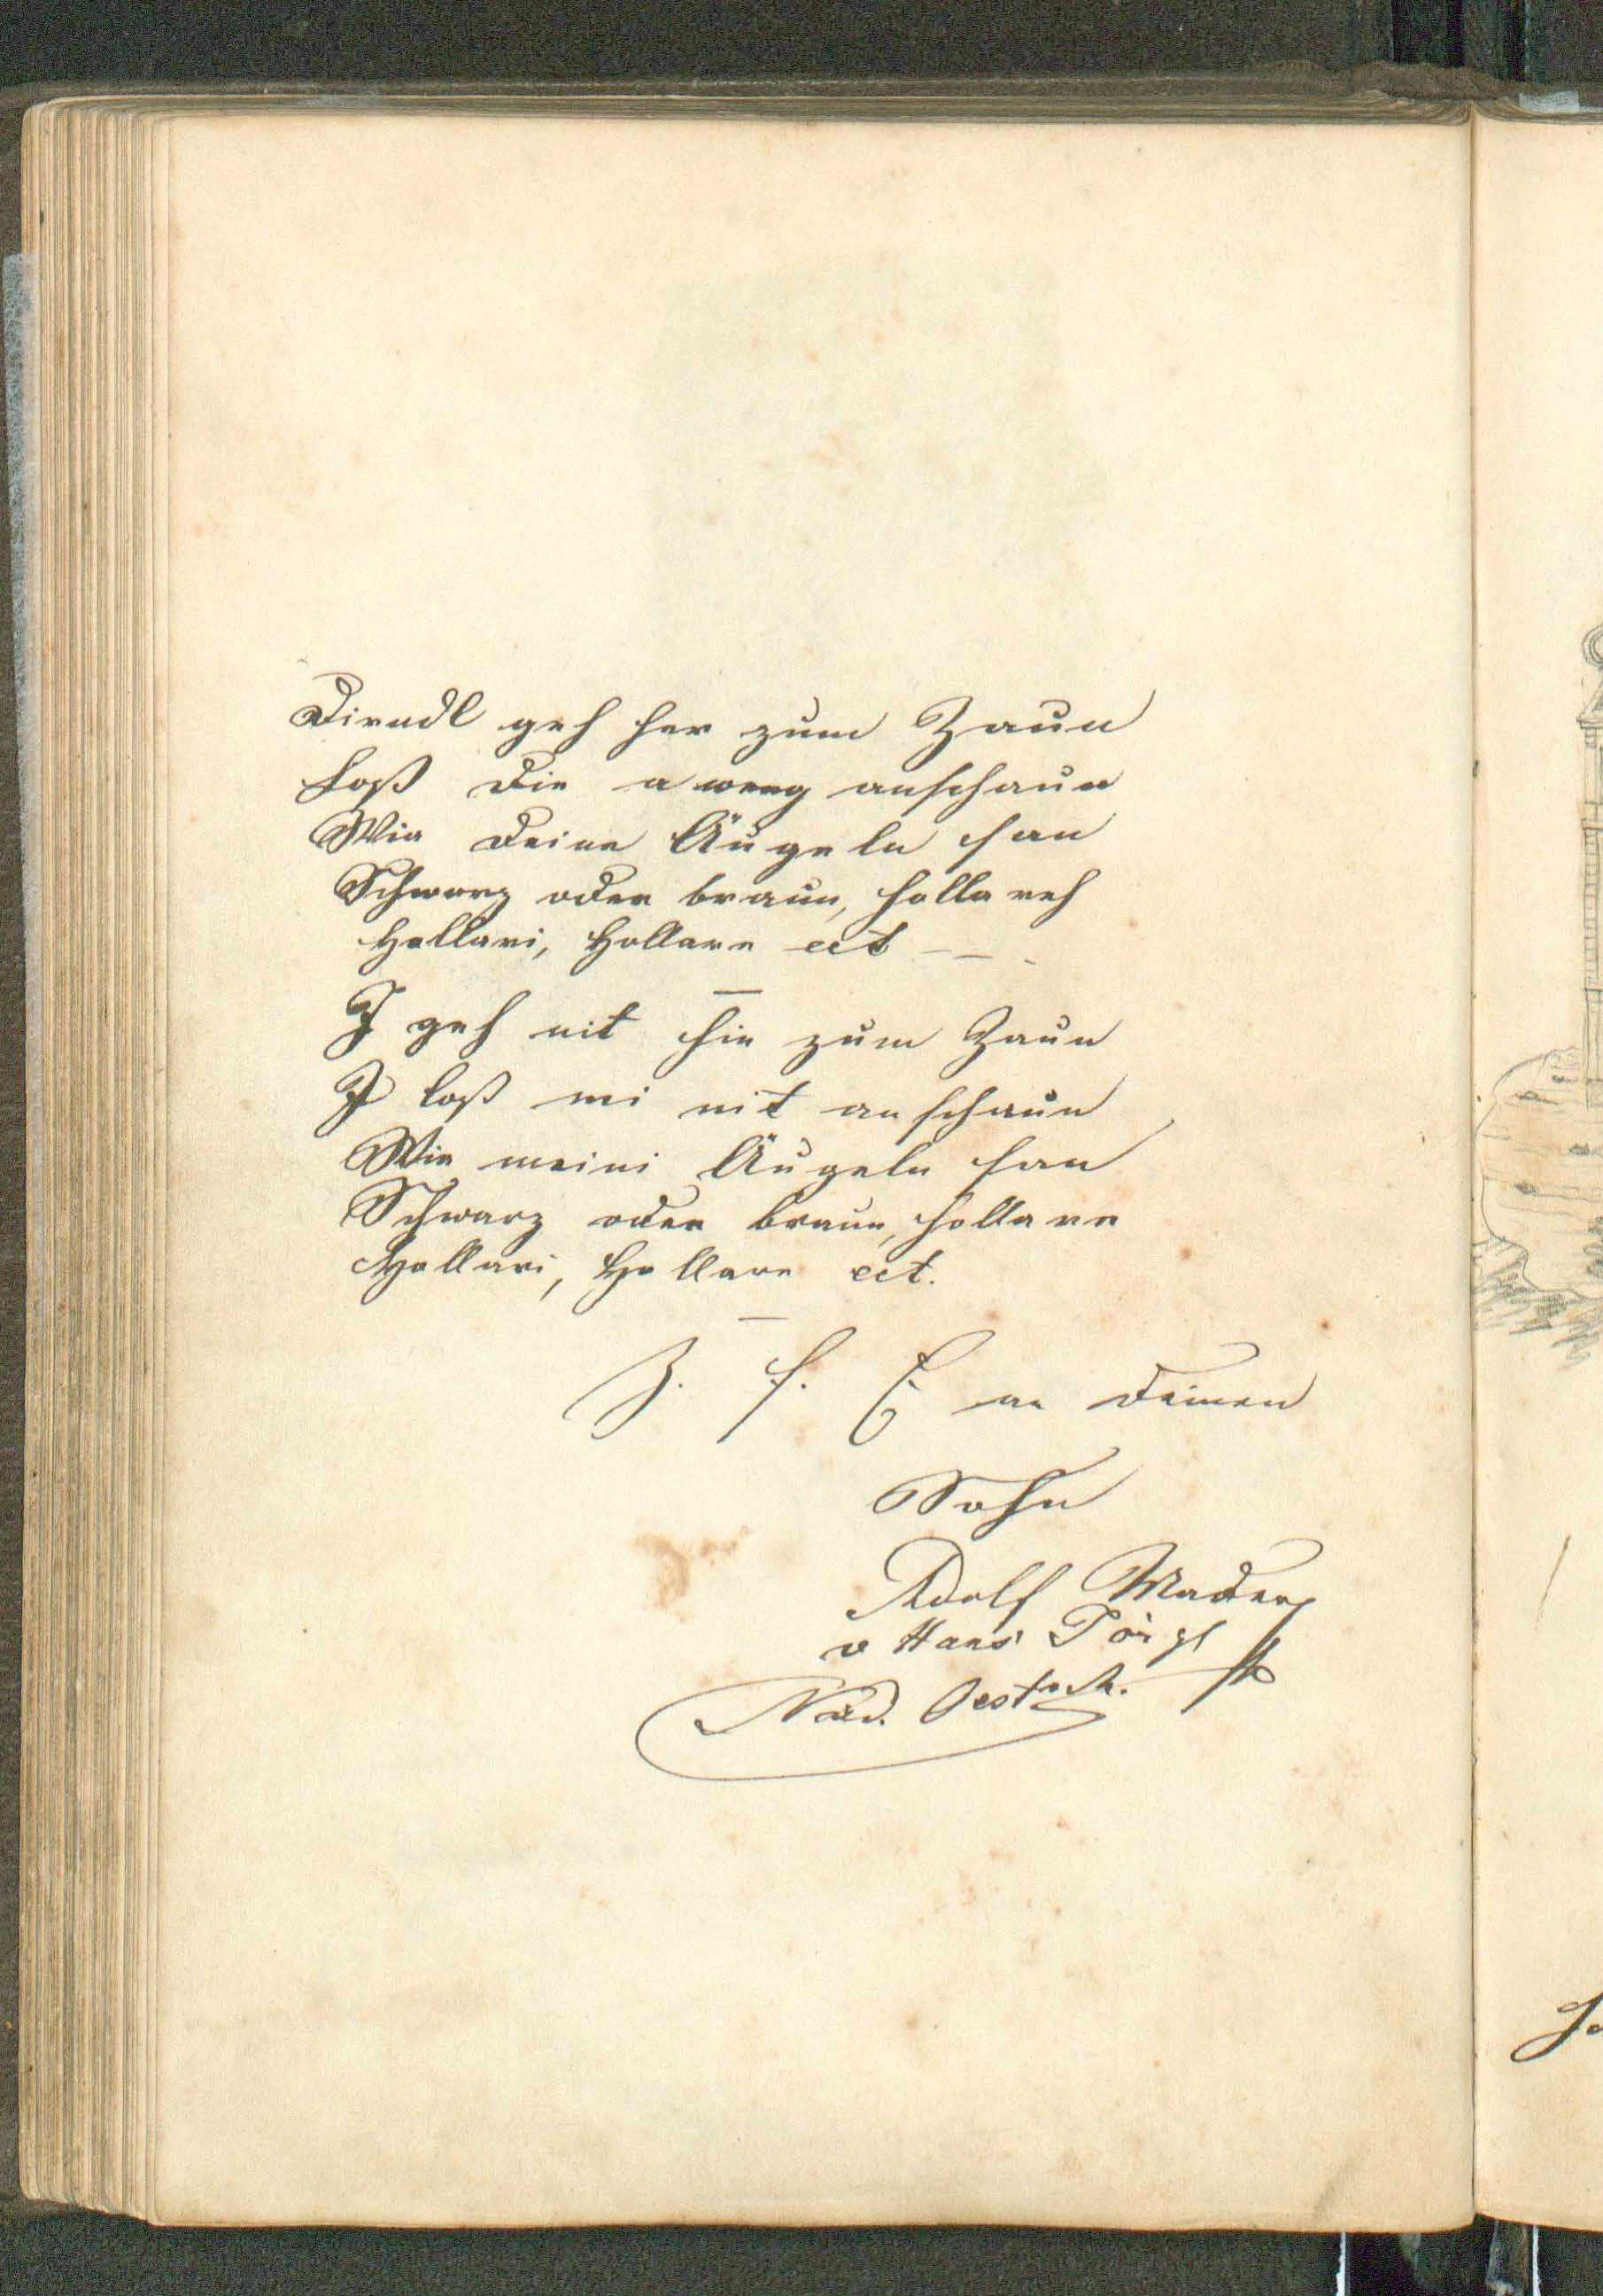 Dirndl geh her zum Zaun
Loß Die a weng anschaun
Wia Deine Äugeln san
Schwarz oder braun, hollareh
Hollari, Hollare ect — -
I geh nit hin zum Zaun
I loß mi nit anschaun
Wie meini Äugeln san
Schwarz oder braun, hollare
Hollari, Hollare ect.
Z. f. E an Deinen
Sohn
Adolf Mader
v Hans
Oestrch.